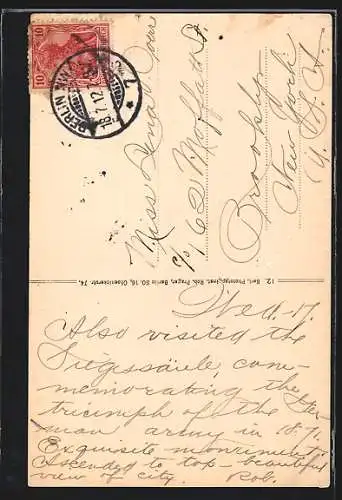 10 10
BERLIN S.W.
18.7.12
Miss Lena
c/o 162 Moffatt St
Brooklyn
New York
U. S. A.
12. Berl. Photogr. Inst. Rob. Prager, Berlin SO. 16,
Wed. 17.
Also visited the
Siegessäule, com-
memorating the
triumph of the Ger-
man army in 1871.
Exquisite monument
Ascended to top – beautiful
view of city. Rob.